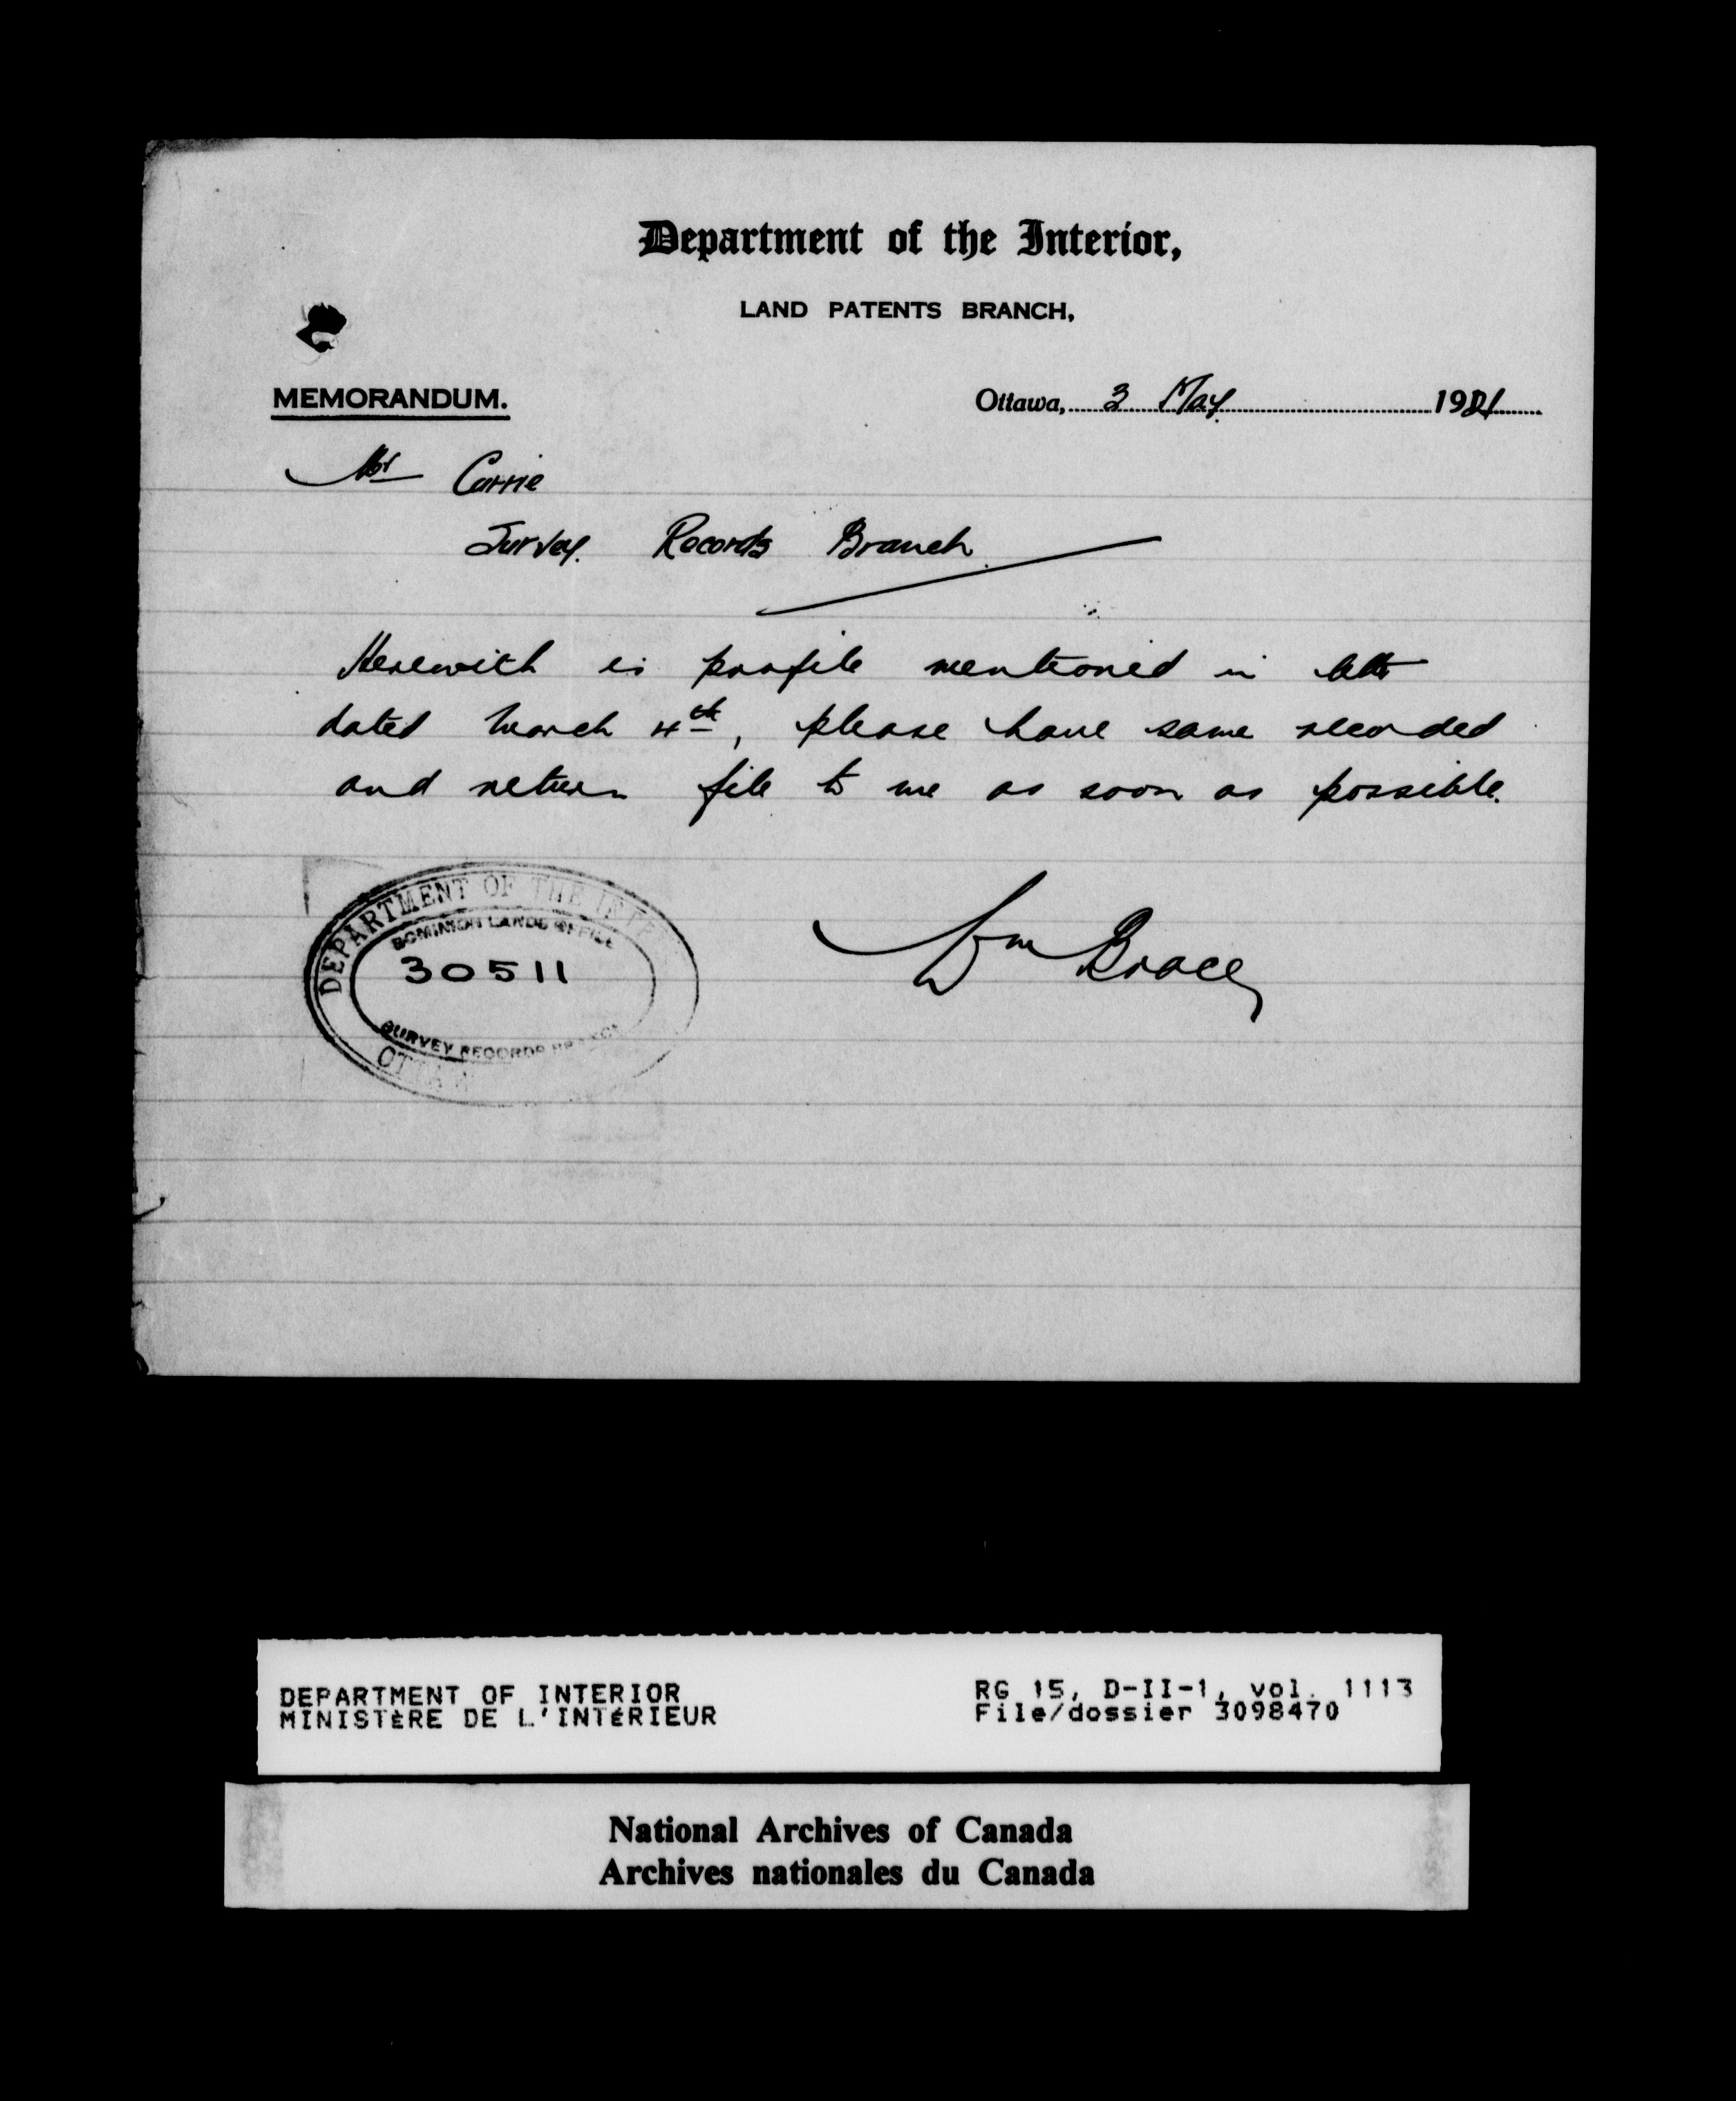 Department of the Interior,
LAND PATENTS BRANCH,
MEMORANDUM.
Ottawa, 3 May 1921
Mr Currie
Survey Records Branch
Herewith is profile mentioned in letter
dated March 4th, please have same recorded
and return file to me as soon as possible.
DEPARTMENT OF THE INTE
DOMINION LANDS OFFICE
30511
SURVEY RECORDS BRANCH
OTTAW
Wm Brace
DEPARTMENT OF INTERIOR
MINISTÈRE DE L'INTÉRIEUR
RG 15, D-II-1, vol. 1113
File/dossier 3098470
National Archives of Canada
Archives nationales du Canada